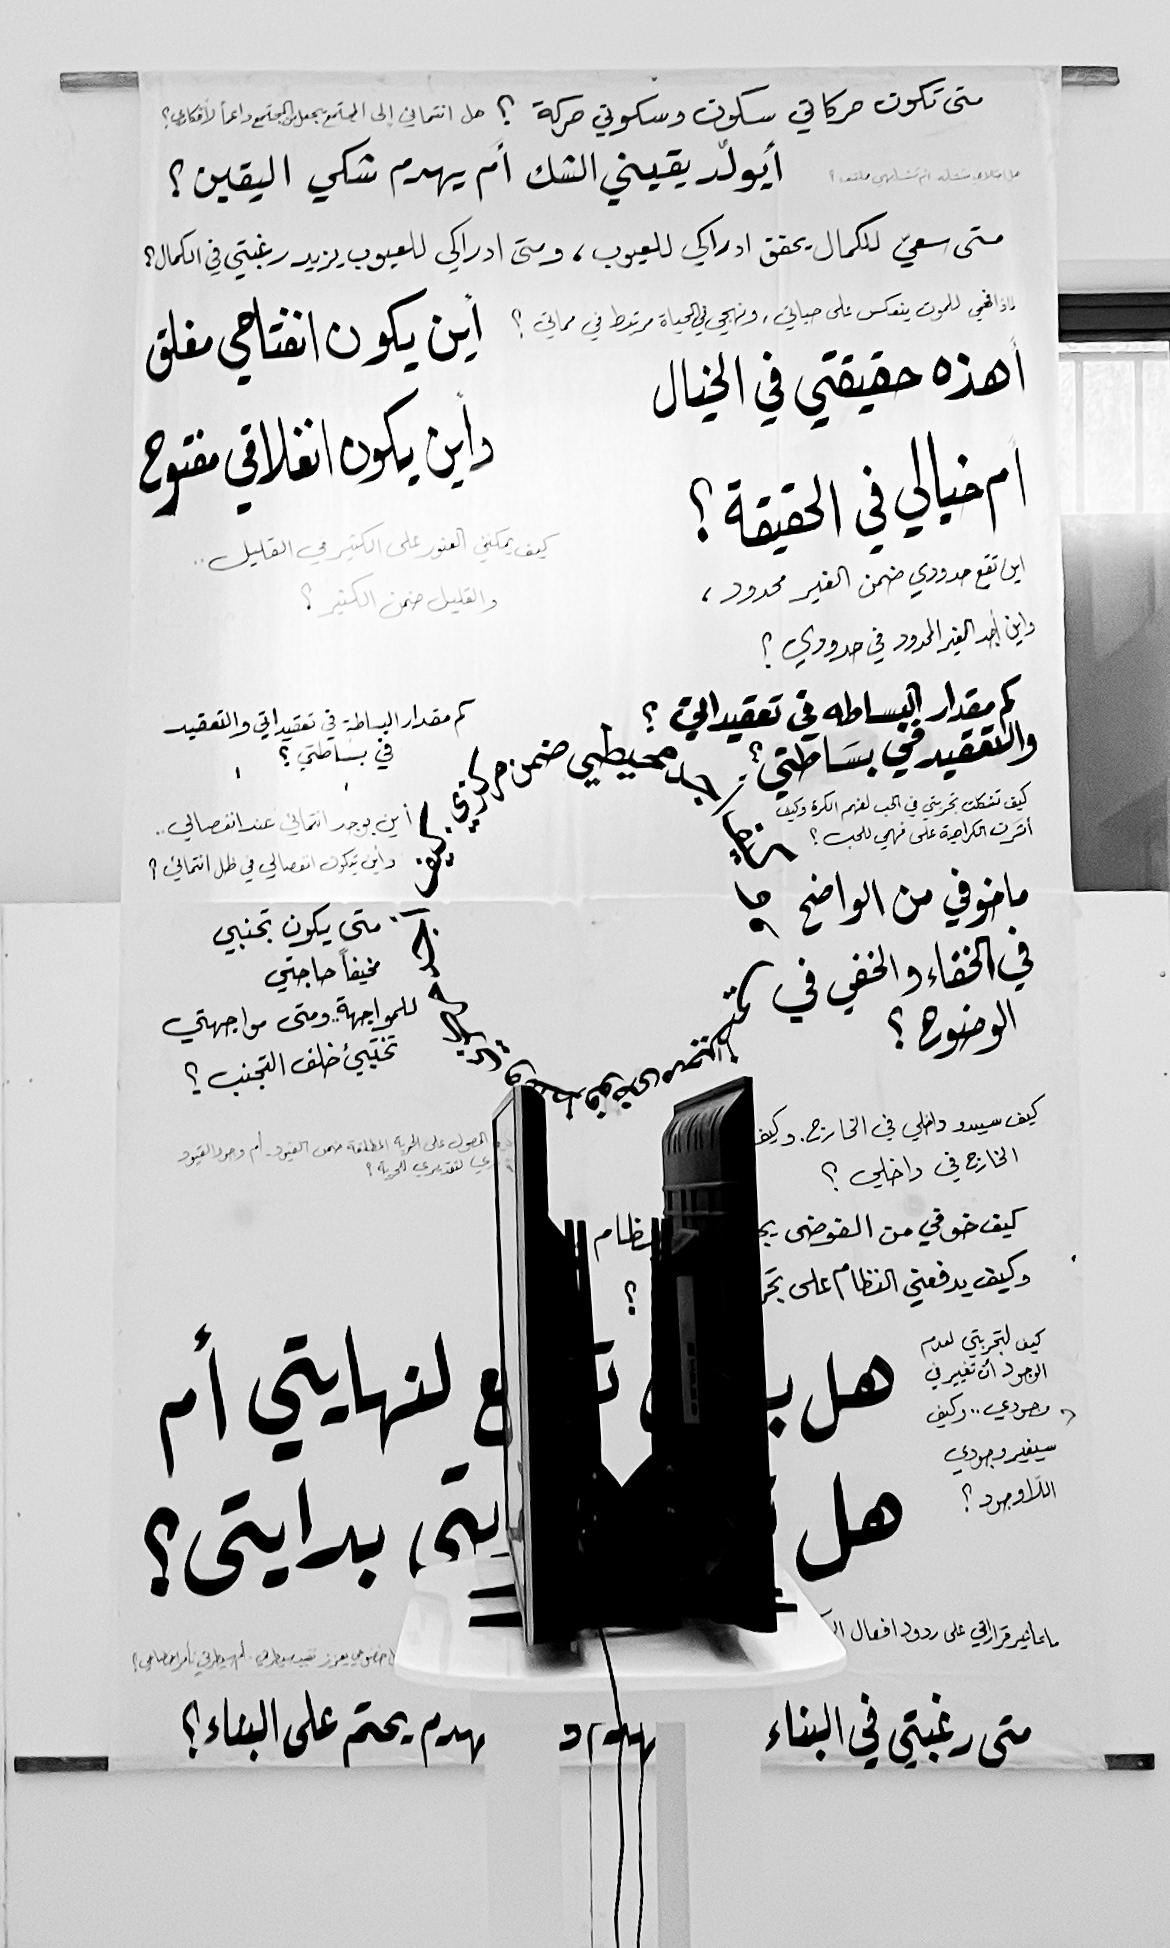 متى تكون حركاتي سكون وسكوني حركة ؟ هل انتمائي إلى المجتمع يجعل من المجتمع داعماً لأفكاري؟
أيولّد يقيني الشك أم يهدم شكي اليقين ؟
متى سعيّ للكمال يحقق ادراكي للعيوب ، ومتى ادراكي للعيوب يزيد رغبتي في الكمال؟
للموت ينعكس على حياتي ، ونهجي في الحياة مرتبط في مماتي ؟
أين يكون انفتاحي مغلق
وأين يكون انغلاقي مفتوح
أهذه حقيقتي في الخيال
أم خيالي في الحقيقة ؟
كيف يمكنني العثور على الكثير في القليل ..
والقليل ضمن الكثير ؟
اين تقع حدودي ضمن الغير محدود ،
واين أجد الغير المحدود في حدودي ؟
كم مقدار البساطه في تعقيداتي ؟
والتعقيد في بسَاطتي ؟
كم مقدار البساطة في تعقيداتي والتعقيد
في بساطتي ؟
كيف أجد محيطي ضمن مركزي
كيف تشكلت تجربتي في الحب لفهم الكره وكيف
أثرت الكراهية على فهمي للحب ؟
أين يوجد انتمائي عند انفصالي ..
وأين يكون انفصالي في ظل انتمائي ؟
ما خوفي من الواضح
في الخفاء والخفي في
الوضوح ؟
متى يكون تجنبي
مخيفاً حاجتي
للمواجهة .. ومتى مواجهتي
تختبئ خلف التجنب ؟
كيف سيبدو داخلي في الخارج . وكيف
الخارج في داخلي ؟
الحصول على الحرية المطلقة ضمن القيود .. أم وجود القيود
لتقديري للحرية ؟
كيف خوفي من الفوضى
وكيف يدفعني النظام على
؟
كيف لتجربتي لعدم
الوجود أن تغير في
وجودي .. وكيف
سيغير وجودي
اللّاوجود ؟
هل لنهايتي أم
هل بدايتي ؟
ما تأثير قراراتي على ردود افعال
متى رغبتي في البناء تهدم و
تهدم يحتم على البناء ؟